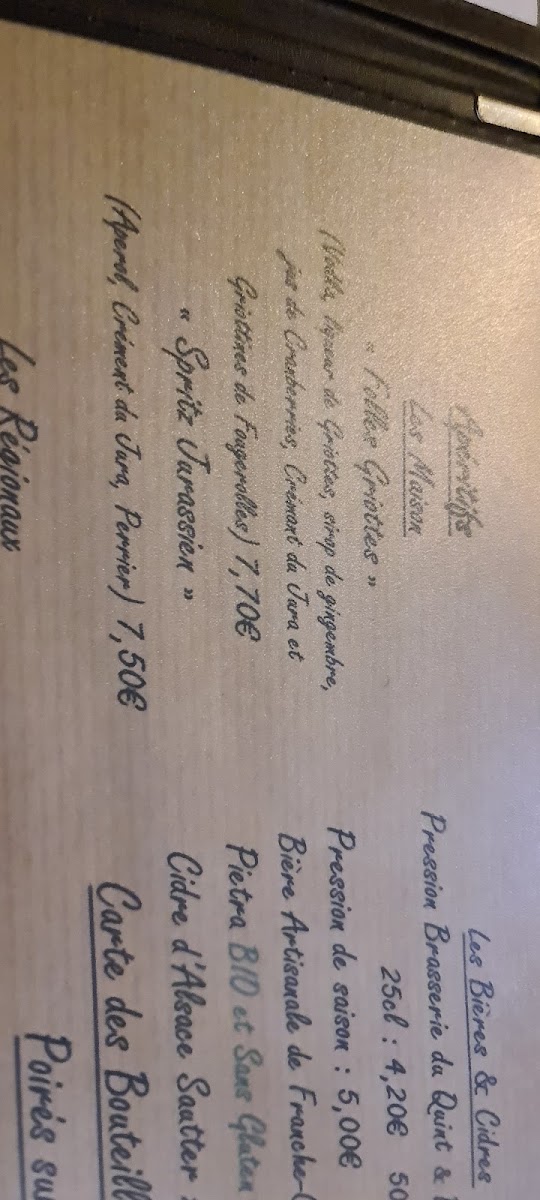 Apéritifs
Les Maison
« Folles Griottes »
(Vodka, liqueur de Griottes, sirop de gingembre,
jus de Cranberries, Crémant du Jura et
Griottines de Fougerolles) 7,70€
« Spritz Jurassien »
(Aperol, Crémant du Jura, Perrier) 7,50€
Les Régionaux
Les Bières & Cidres
Pression Brasserie du Quint &
25cl : 4,20€ 50
Pression de saison : 5,00€
Bière Artisanale de Franche-
Pietra BIO et Sans Gluten
Cidre d'Alsace Sautter
Carte des Bouteill
Poirés su